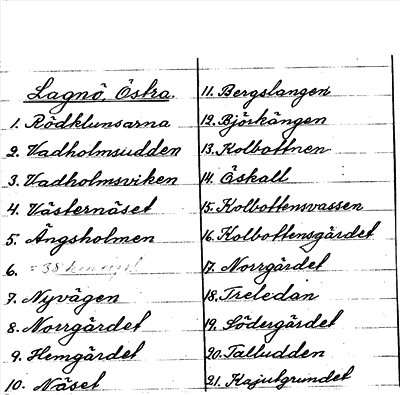 Lagnö, Östra.
1. Rödklunsarna
2. Vadholmsudden
3. Vadholmsviken
4. Västernäset
5. Ängsholmen
6. = 38
7. Nyvägen
8. Norrgärdet
9. Hemgärdet
10. Näset
11. Bergslangen
12. Björkängen
13. Kolbottnen
14. Öskall
15. Kolbottensvassen
16. Kolbottensgärdet
17. Norrgärdet
18. Treledan
19. Södergärdet
20. Talludden
21. Kajutgrundet